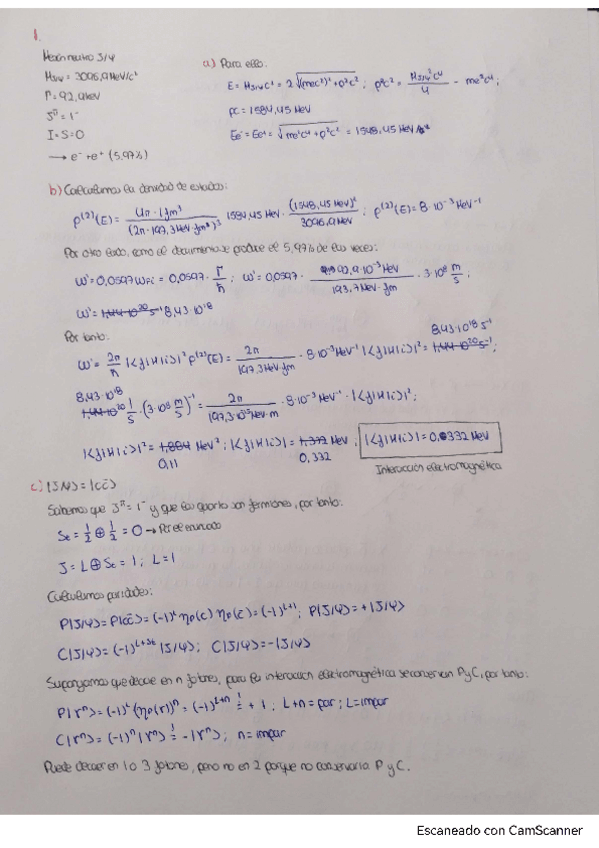 1.
Mesón neutro J/ψ
M_J/ψ = 3096,9 MeV/c²
Γ = 92,9 keV
J^π = 1⁻
I = S = 0
→ e⁻ + e⁺ (5,97%)
a) Para ello:
E = M_J/ψ c² = 2√((mec²)² + p²c²); p²c² = M_J/ψ² c⁴/4 − me²c⁴;
pc = 1584,45 MeV
Ee⁻ = Ee⁺ = √(me²c⁴ + p²c²) = 1548,45 MeV
b) Calculamos la densidad de estados:
ρ⁽²⁾(E) = 4π · 1fm³/(2π · 197,3 MeV·fm)³ · 1584,45 MeV · (1548,45 MeV)²/3096,9 MeV; ρ⁽²⁾(E) = 8·10⁻³ MeV⁻¹
Por otro lado, como el decaimiento se produce el 5,97% de las veces:
ω' = 0,0597 ωFi = 0,0597 · Γ/ħ; ω' = 0,0597 · 92,9·10⁻³ MeV/193,7 MeV·fm · 3·10⁸ m/s;
ω' = 1,44·10²⁰ s⁻¹ 8,43·10¹⁸
Por tanto:
ω' = 2π/ħ |<f|H|i>|² ρ⁽²⁾(E) = 2π/197,3 MeV·fm · 8·10⁻³ MeV⁻¹ |<f|H|i>|² = 1,44·10²⁰ s⁻¹; 8,43·10¹⁸ s⁻¹
8,43·10¹⁸
1,44·10²⁰ 1/s · (3·10⁸ m/s)⁻¹ = 2π/197,3·10⁻¹⁵ MeV·m · 8·10⁻³ MeV⁻¹ · |<f|H|i>|²;
|<f|H|i>|² = 1,884 MeV²; |<f|H|i>| = 1,372 MeV; |<f|H|i>| = 0,332 MeV
0,11 0,332
Interacción electromagnética
c) |J/ψ> = |cc̄>
Sabemos que J^π = 1⁻ y que los quarks son fermiones, por tanto:
St = 1/2 ⊕ 1/2 = 0 → Por el enunciado
J = L ⊕ St = 1; L = 1
Calculamos paridades:
P|J/ψ> = P|cc̄> = (−1)ᴸ ηp(c) ηp(c̄) = (−1)ᴸ⁺¹; P|J/ψ> = +|J/ψ>
C|J/ψ> = (−1)ᴸ⁺ˢᵗ |J/ψ>; C|J/ψ> = −|J/ψ>
Supongamos que decae en n fotones, para la interacción electromagnética se conservan P y C, por tanto:
P|γⁿ> = (−1)ᴸ (ηp(γ))ⁿ = (−1)ᴸ⁺ⁿ = +1; L+n = par; L = impar
C|γⁿ> = (−1)ⁿ |γⁿ> = −|γⁿ>; n = impar
Puede decaer en 1 o 3 fotones, pero no en 2 porque no conservaría P y C.
Escaneado con CamScanner